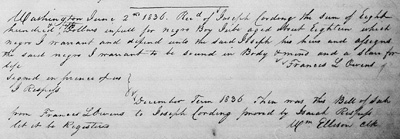 Washington June 2nd 1836. Recd of Joseph Cording the sum of Eight
hundred Dollars in full for negro Boy Jubs aged about Eighteen which
negro I warrant and defend unto the said Joseph his heirs and assigns
the said negro I warrant to be sound in Body & mind and a Slave for
life
Frances L Owens
Signed in presence of us
J Respess
December Term 1836 Then was this Bill of Sale
from Frances L Owens to Joseph Cording proved by Isaiah Respess
let it be Registered
Wm Ellison Clk